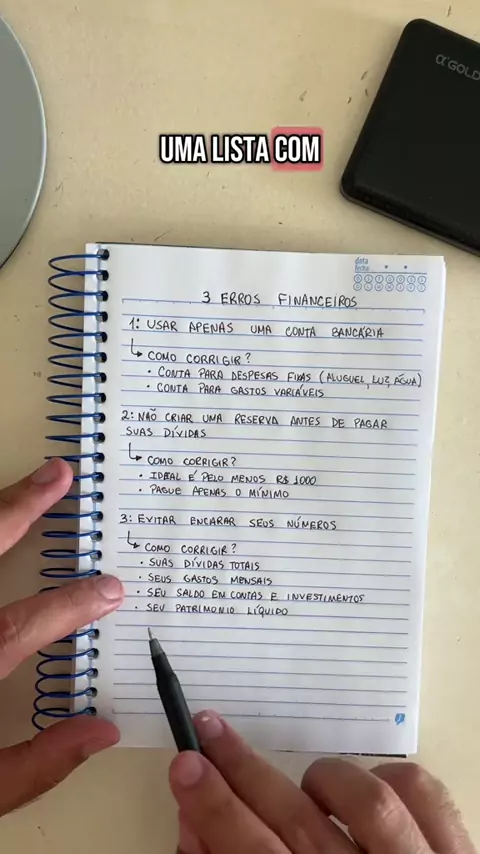 α'GOLD
UMA LISTA COM
data
fecha
3 ERROS FINANCEIROS
1: USAR APENAS UMA CONTA BANCÁRIA
COMO CORRIGIR?
• CONTA PARA DESPESAS FIXAS (ALUGUEL, LUZ, ÁGUA)
• CONTA PARA GASTOS VARIÁVEIS
2: NÃO CRIAR UMA RESERVA ANTES DE PAGAR
SUAS DÍVIDAS
COMO CORRIGIR?
• IDEAL É PELO MENOS R$ 1000
• PAGUE APENAS O MÍNIMO
3: EVITAR ENCARAR SEUS NÚMEROS
COMO CORRIGIR?
• SUAS DÍVIDAS TOTAIS
• SEUS GASTOS MENSAIS
• SEU SALDO EM CONTAS E INVESTIMENTOS
• SEU PATRIMONIO LÍQUIDO